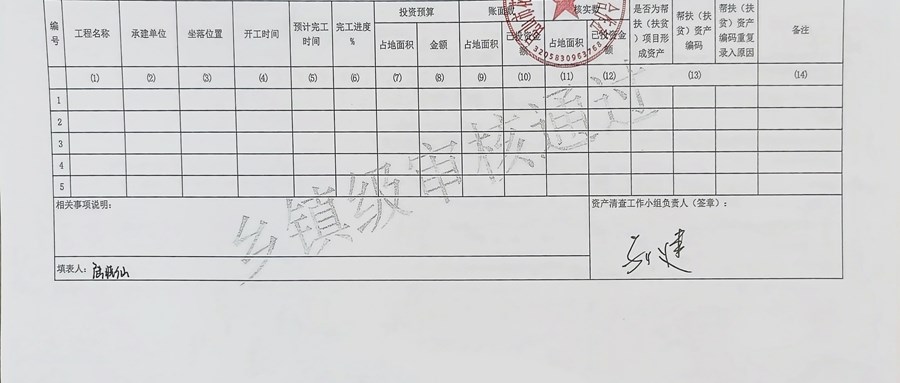 投资预算 账面数 核实数
编号 工程名称 承建单位 坐落位置 开工时间 预计完工时间 完工进度% 占地面积 金额 占地面积 已投资金额 占地面积 已投资金额 是否为帮扶(扶贫)项目形成资产 帮扶(扶贫)资产编码 帮扶(扶贫)资产编码重复录入原因 备注
(1) (2) (3) (4) (5) (6) (7) (8) (9) (10) (11) (12) (13) (14)
1
2
3
4
5
乡镇级审核通过
3205830963768
相关事项说明:
资产清查工作小组负责人(签章):
填表人: